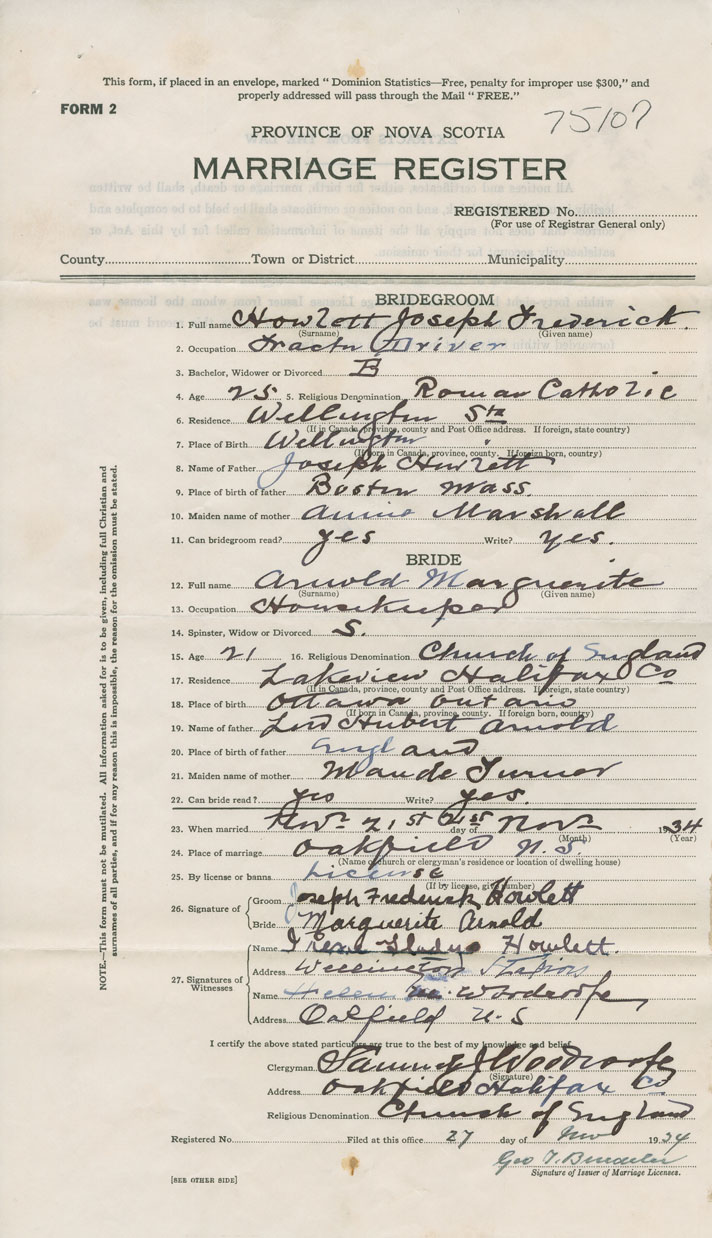 This form, if placed in an envelope, marked “ Dominion Statistics—Free, penalty for improper use $300,” and
properly addressed will pass through the Mail “ FREE.”
FORM 2
75107
PROVINCE OF NOVA SCOTIA
MARRIAGE REGISTER
REGISTERED No.
(For use of Registrar General only)
County Town or District Municipality
BRIDEGROOM
1. Full name Howlett Joseph Frederick
(Surname) (Given name)
2. Occupation Tractor Driver
3. Bachelor, Widower or Divorced B
4. Age 25 5. Religious Denomination Roman Catholic
6. Residence Wellington Sta
(If in Canada, province, county and Post Office address. If foreign, state country)
7. Place of Birth Wellington
(If born in Canada, province, county. If foreign born, country)
8. Name of Father Joseph Howlett
9. Place of birth of father Boston Mass.
10. Maiden name of mother Annie Marshall
11. Can bridegroom read? yes Write? yes.
BRIDE
12. Full name Arnold Marguerite
(Surname) (Given name)
13. Occupation Housekeeper
14. Spinster, Widow or Divorced S.
15. Age 21 16. Religious Denomination Church of England
17. Residence Lakeview Halifax Co
(If in Canada, province, county and Post Office address. If foreign, state country)
18. Place of birth Ottawa Ontario
(If born in Canada, province, county. If foreign born, country)
19. Name of father Hubert Arnold
20. Place of birth of father England
21. Maiden name of mother Maude Turner
22. Can bride read? yes Write? yes.
23. When married Nov. 21st 21st day of Nov. 1934
(Month) (Year)
24. Place of marriage Oakfield N.S.
(Name of church or clergyman's residence or location of dwelling house)
25. By license or banns License
(If by license, give number)
26. Signature of Groom Joseph Frederick Howlett
Bride Marguerite Arnold
27. Signatures of Witnesses
Name Irene Gladys Howlett.
Address Wellington Station
Name Helen M. Woodroofe
Address Oakfield N.S
I certify the above stated particulars are true to the best of my knowledge and belief.
Clergyman Samuel J Woodroofe
(Signature)
Address Oakfield Halifax Co.
Religious Denomination Church of England
Registered No. Filed at this office 27 day of Nov 1934
Geo T.
Signature of Issuer of Marriage Licenses.
[SEE OTHER SIDE]
NOTE.—This form must not be mutilated. All information asked for is to be given, including full Christian and
surnames of all parties, and if for any reason this is impossible, the reason for the omission must be stated.